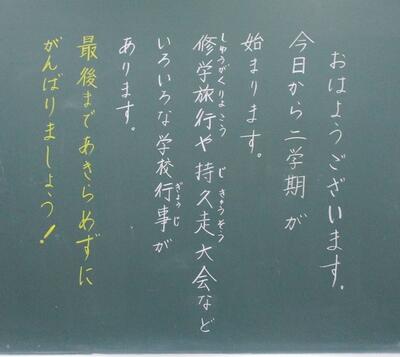 おはようございます。
今日から二学期が
始まります。
修学旅行や持久走大会など
しゅうがくりょこう じきゅうそう
いろいろな学校行事が
ぎょうじ
あります。
最後まであきらめずに
がんばりましょう!